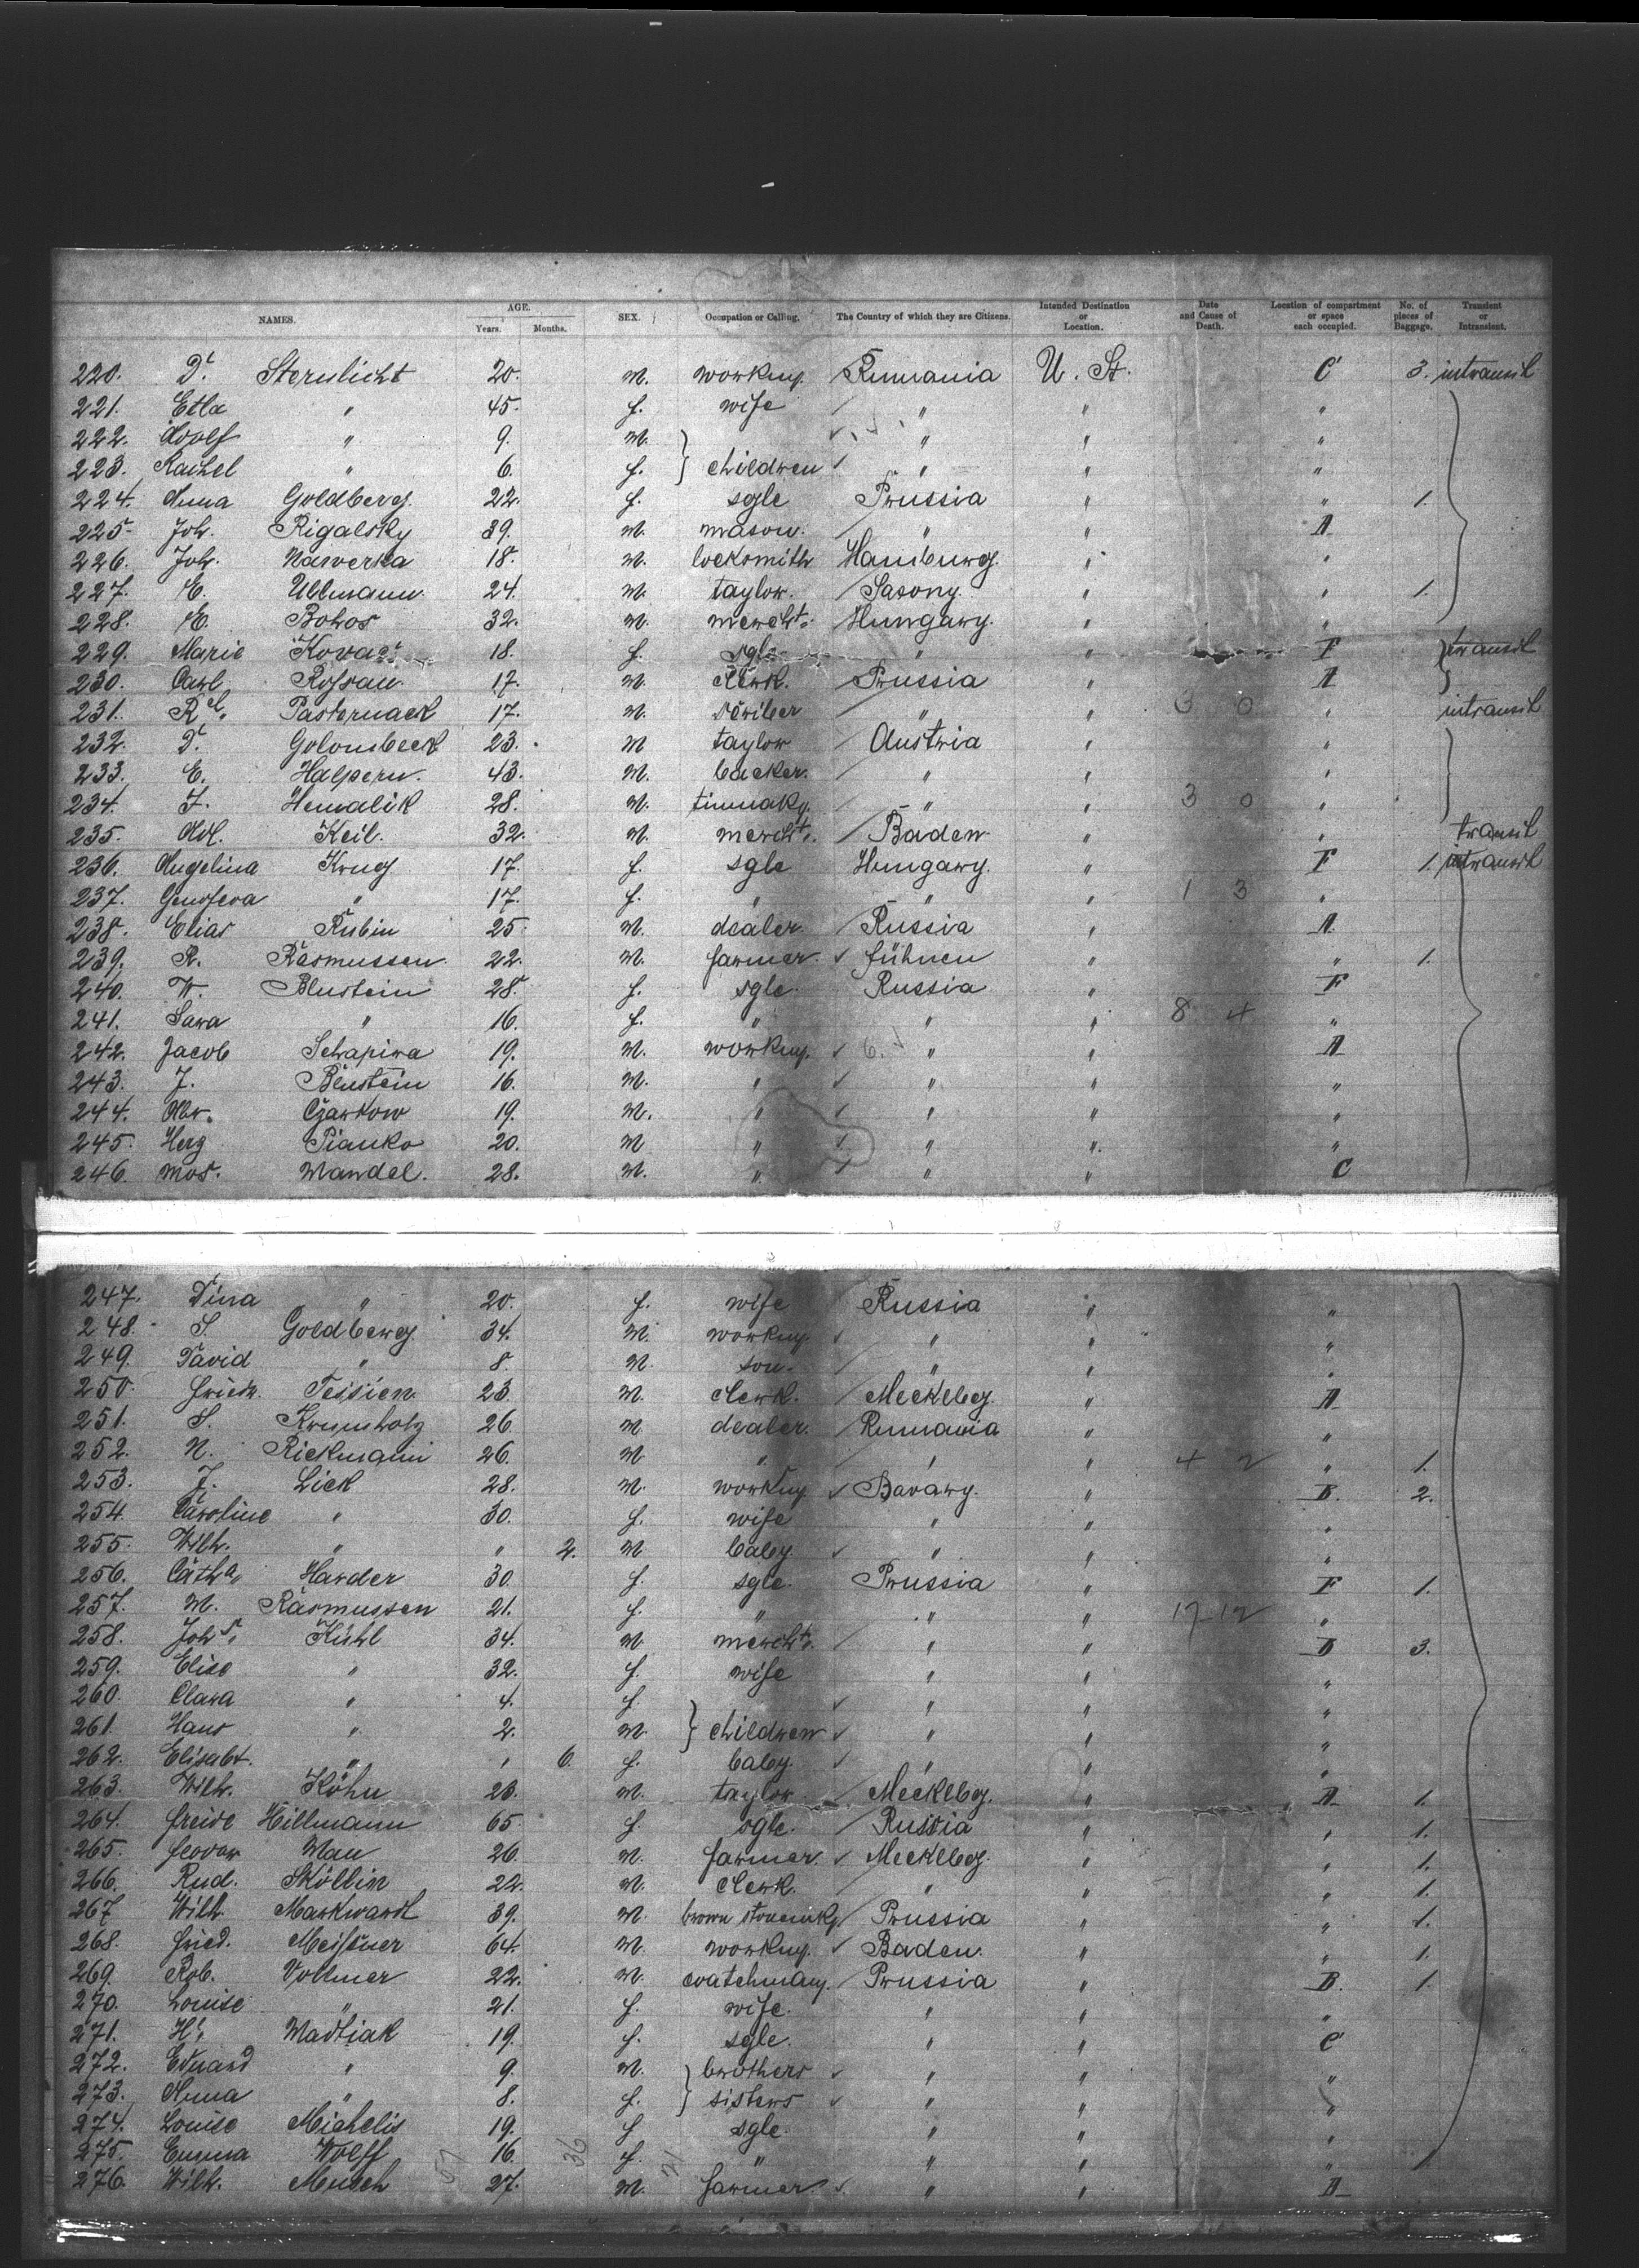 NAMES. AGE. Years. Months. SEX. Occupation or Calling. The Country of which they are Citizens. Intended Destination or Location. Date and Cause of Death. Location of compartment or space each occupied. No. of pieces of Baggage. Transient or Intransient.
220. D. Sternlicht 20. m. workmg. Rumania U. St. C 3. intransit
221. Etla " 45. f. wife " " "
222. Adolf " 9. m. " " "
223. Rachel " 6. f. } children " " "
224. Anna Goldberg. 22. f. sgle Prussia " " 1.
225. Joh. Rigalsky 39. m. mason. " " A
226. Joh. Nawerka 18. m. locksmith Hamburg. " "
227. E. Ullmann 24. m. taylor. Saxony. " " 1.
228. E. Bohos 32. m. mercht. Hungary. " "
229. Marie Kovacs 18. f. sgle " " F } transit
230. Carl Rossau 17. m. clerk. Prussia " A
231. Rd. Pasternack 17. m. scriber " " 3 0 " intransit
232. D. Golonsbeck 23. m taylor Austria " "
233. E. Halpern. 43. m. backer. " " "
234. J. Hemalik 28. m. tinmakg. " " 3 0 "
235. Ad. Keil. 32. m. mercht. Baden " " transit
236. Angelina Krug 17. f. sgle Hungary. " F 1. intransit
237. Genofeva " 17. f. " " " 1 3 "
238. Elias Rubin 25. m. dealer. Russia " A
239. R. Rasmussen 22. m. farmer. fühnen " " 1.
240. W. Blustein 28. f. sgle. Russia " F
241. Sara " 16. f. " " " 8 4 "
242. Jacob Schapira 19. m. workmg. 6. " " A
243. J. Blustein 16. m. " " " "
244. Abr. Czarkow 19. m. " " " "
245. Herz Pianko 20. m " " " "
246. Mos. Mandel. 28. m. " " " C
247. Dina " 20. f. wife Russia " "
248. S. Goldberg 34. m. workmg. " " "
249. David " 8. m. son. " " "
250. Friedr. Tessien. 23. m. clerk. Mecklbg. " A
251. S. Krumholz 26 m. dealer. Rumania " "
252. N. Rickmann 26. m " " " 4 2 " 1.
253. J. Lick 28. m. workmg Bavary. " B. 2.
254. Caroline " 30. f. wife " " "
255. Wilh. " " 2. m baby. " " "
256. Catha. Harder 30. f. sgle. Prussia " F 1.
257. M. Rasmussen 21. f. " " " 17 12 "
258. Johs. Kühl 34. m. mercht. " " B 3.
259. Elise " 32. f. wife " " "
260. Clara " 4. f. " " "
261. Hans " 2. m. } children " " "
262. Elisabt. " " 6. f. baby. " " "
263. Wilh. Köhn 23. m. taylor Mecklbg. " A 1.
264. Freide Hillmann 65. f. sgle. Russia " " 1.
265. Feodor Mau 26. m. farmer. Mecklbg. " " 1.
266. Rud. Sköllin 22. m. clerk. " " " 1.
267 Wilh. Markwardt 39. m. brown stonemkg Prussia " " 1.
268. Fried. Meissner 64. m. workmg. Baden. " " 1.
269. Rob. Vollmer 22. m. watchmang. Prussia " B. 1.
270. Louise " 21. f. wife. " " "
271. H. Madtiak 19. f. sgle. " " C
272. Eduard " 9. m. } brothers " " "
273. Anna " 8. f. } sisters " " "
274. Louise Michelis 19. f sgle. " " "
275. Emma Wolff 16. f. " " " "
276. Wilh. Musch 27. m. farmer. " " A
57 36 21